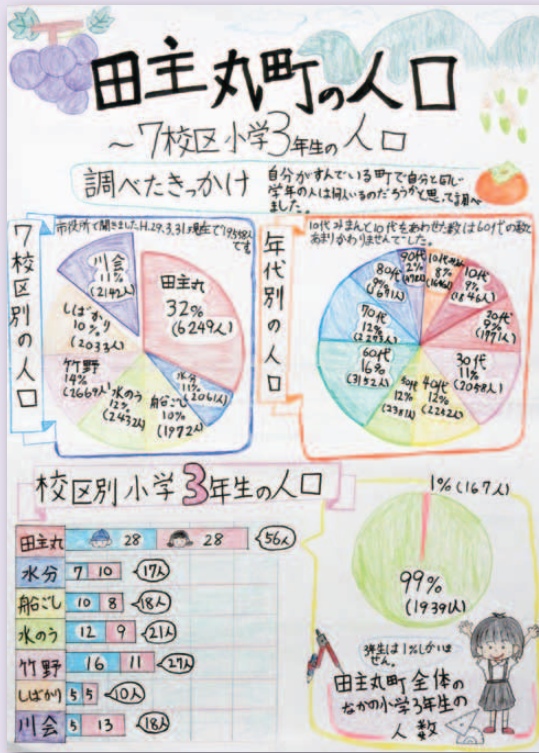 田主丸町の人口
～7校区小学3年生の人口
調べたきっかけ
自分がすんでいる町で自分と同じ
学年の人は何人いるのだろうかと思って調べ
ました。
7校区別の人口
市役所で聞きましたH.29.3.31現在で19558人
です
田主丸
32%
(6249人)
水分
11%
(2061人)
船ごし
10%
(1972人)
水のう
12%
(2432人)
竹野
14%
(2669人)
しばかり
10%
(2033人)
川会
11%
(2142人)
年代別の人口
10代みまんと10代をあわせた数は60代の数と
あまりかわりませんでした。
10代みまん
8%
10代
9%
20代
9%
30代
11%
(2058人)
40代
12%
(2252人)
50代
12%
(2381人)
60代
16%
(3152人)
70代
12%
80代
9%
90代
2%
校区別小学3年生の人口
田主丸 28 28 56人
水分 7 10 17人
船ごし 10 8 18人
水のう 12 9 21人
竹野 16 11 27人
しばかり 5 5 10人
川会 5 13 18人
1%(167人)
99%
(19391人)
3年生は1%しかいま
せん。
田主丸町全体の
なかの小学3年生の
人数